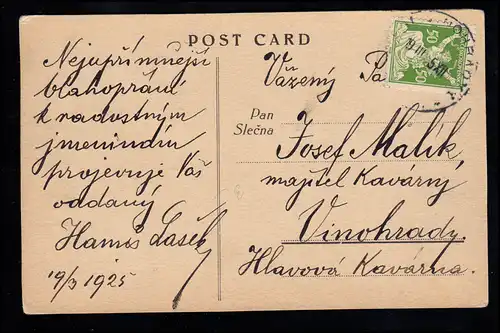 POST CARD
Nejupřímnější
blahopřání
k radostným
jmeninám
projevuje Váš
oddaný
Hanuš Lašek
19/3 1925
50
50
Vážený Pa
Pan
Slečna
Josef Malík,
majitel Kavárny
Vinohrady.
Hlavová Kavárna.